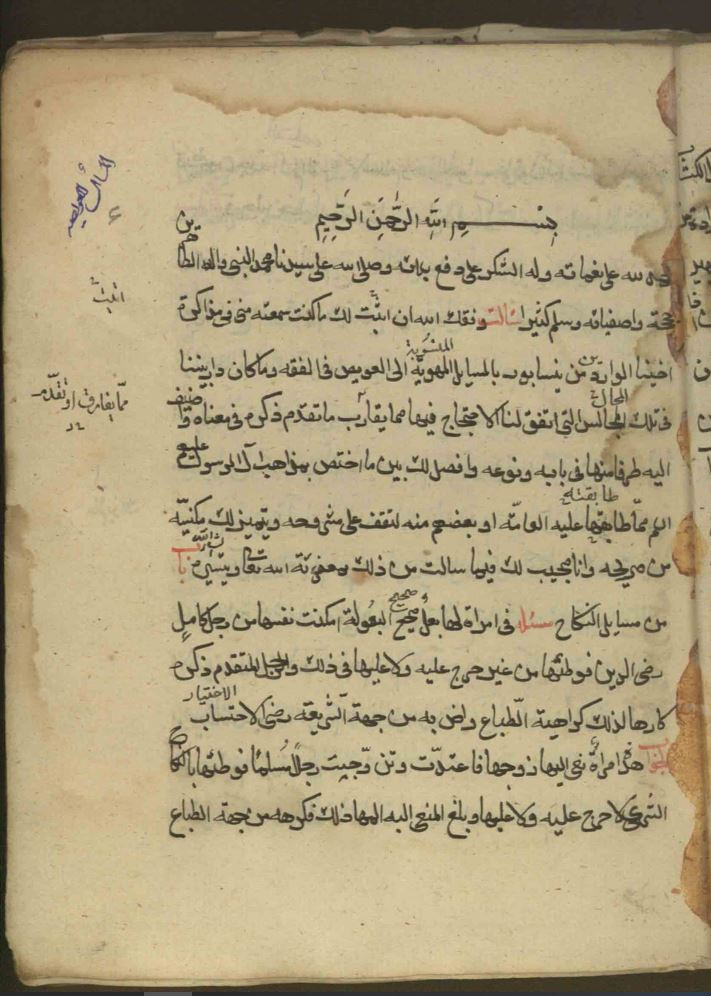 بسم الله الرحمن الرحيم
الحمد لله على نعمائه وله الشكر على دفع بلائه وصلى الله على سيدنا محمد النبي واله الطاهرين
وأصفيائه وسلم كثيرا سالت وفقك الله ان اثبت لك ما كنت سمعته مني في مذاكرة
اخينا الوارد من نيسابور بالمسايل المهوية الى العويص في الفقه وما كان دار بيننا
في تلك المجالس التي اتفق لنا الاحتجاج فيها مما يقارب ما تقدم ذكره في معناه واضيف
اليه طرفا منها في بابه ونوعه وافصل لك بين ما اختص بمذاهب آل الرسول عليهم
السلم مما طابقتها عليه العامة او بعضهم منه لتقف على مشروحه ويتميز لك مكنيه
من صريحه وانا مجيب لك فيما سالت من ذلك بمعونة الله تعالى وتيسيره باب
من مسايل النكاح مسئلة في امراة لها بعل صحيح البعولة امكنت نفسها من رجل كامل
رضي الدين فوطئها من غير حرج عليه ولا عليها في ذلك والبعل المتقدم ذكره
كاره لذلك كراهية الطباع راض به من جهة الشريعة رضى الاحتساب
الاختيار
الجواب هذه امراة نعي اليها زوجها فاعتدت وتزوجت رجلا مسلما فوطئها بالنكاح
الشرعي لا حرج عليه ولا عليها وبلغ المنعي اليها ذلك فكرهه من جهة الطباع
المسائل العويصة
اثبت
مما يفارق او تقدم
المنسوبة
المجالس
طابقته
صحيح